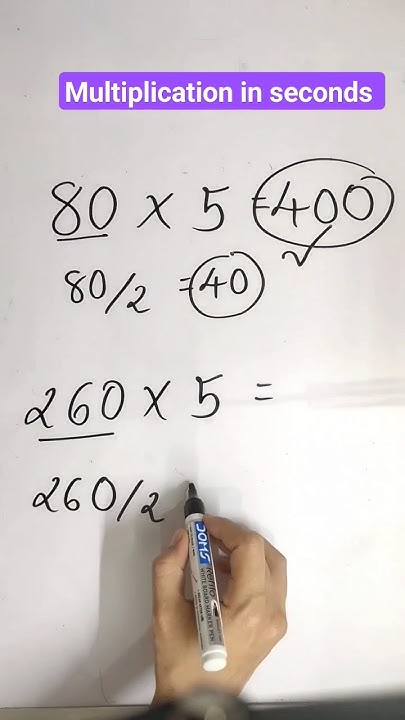 Multiplication in seconds
80 × 5 = 400 ✓
80/2 = 40
260 × 5 =
260/2
DOMS
WHITE BOARD MARKER PEN